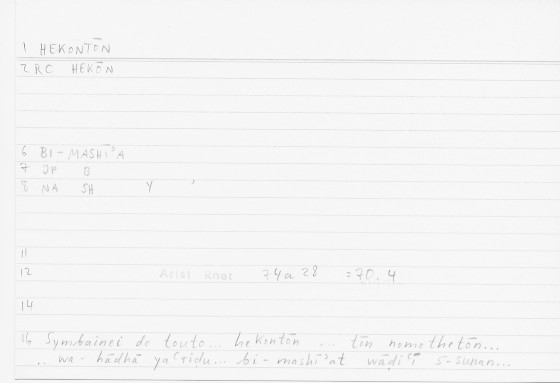 1 HEKONTŌN
2 RC HEKŌN
6 BI-MASHĪʾA
7 JP B
8 NA SH Y ʾ
11
12 Arist Rhet 74a 28 =70,4
14
16 Symbainei de touto... hekontōn ... tīn nomothetōn...
.. wa-hādhā yaʿriḍu... bi-mashīʾat wāḍiʿī s-sunan...